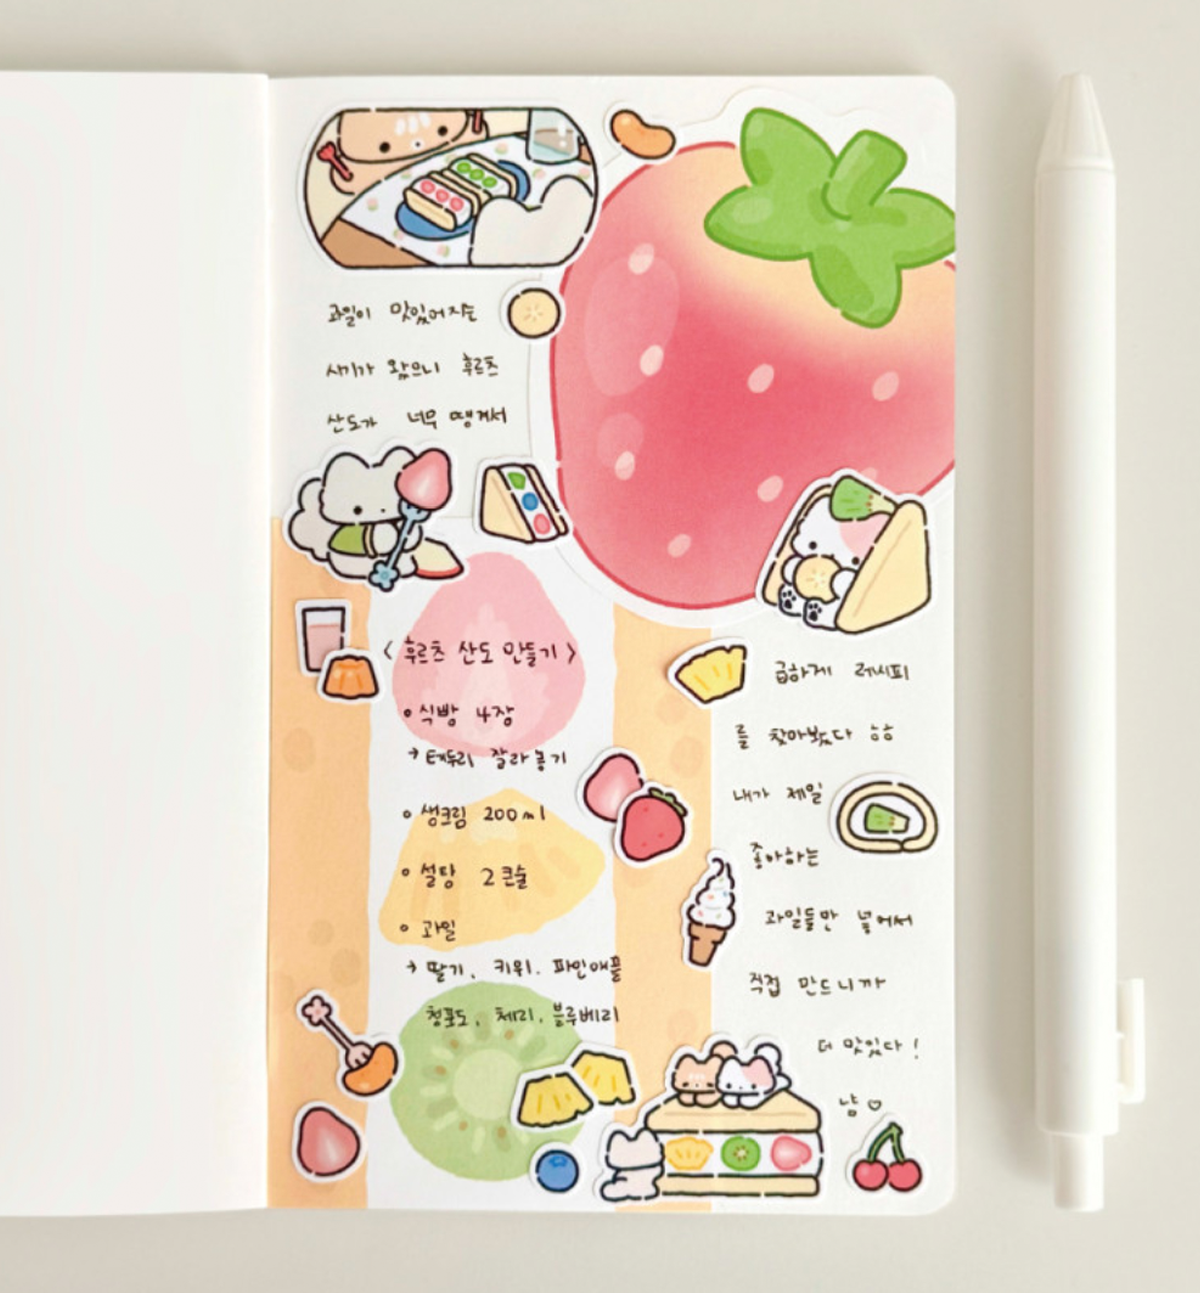 과일이 맛있어지는
시기가 왔으니 후르츠
산도가 너무 땡겨서
< 후르츠 산도 만들기 >
• 식빵 4장
→ 테두리 잘라놓기
• 생크림 200ml
• 설탕 2큰술
• 과일
→ 딸기, 키위, 파인애플
청포도, 체리, 블루베리
급하게 레시피
를 찾아봤다 ㅎㅎ
내가 제일
좋아하는
과일들만 넣어서
직접 만드니까
더 맛있다!
냠♡